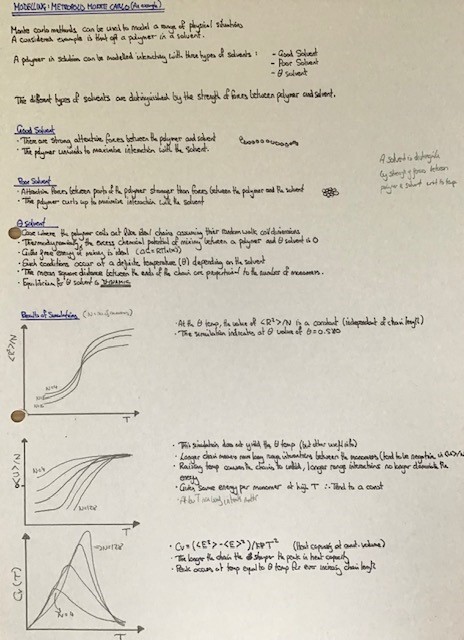 MODELLING: METROPOLIS MONTE CARLO (An example)
Monte carlo methods can be used to model a range of physical situations
A considered example is that of a polymer in a solvent.
A polymer in solution can be modelled interacting with three types of solvents:
- Good Solvent
- Poor Solvent
- θ solvent
The different types of solvents are distinguished by the strength of forces between polymer and solvent.
Good Solvent
• There are strong attractive forces between the polymer and solvent
• The polymer unwinds to maximise interaction with the solvent.
A solvent is distinguished
by strength of forces between
polymer & solvent
Poor Solvent
• Attractive forces between parts of the polymer stronger than forces between the polymer and the solvent
• The polymer curls up to maximise interaction with the solvent
θ Solvent
• Case where the polymer coils act like ideal chains assuming their random walk coil dimensions
• Thermodynamically the excess chemical potential of mixing between a polymer and θ solvent is 0
• Gibbs free energy of mixing is ideal
• Such conditions occur at a definite temperature (θ) depending on the solvent
• The mean square distance between the ends of the chain are proportional to the number of monomers.
• Equilibrium for θ solvent is DYNAMIC
Results of Simulating (N = No of monomers)
<R²>/N
T
• At the θ temp, the value of <R²>/N is a constant (independent of chain length)
• The simulation indicates at θ value of
<U>/N
N=4
N=128
T
• This simulation does not yield the θ temp (but other useful info)
• Longer chain means more long range interactions between the monomers (tend to be negative in <U>/N)
• Raising temp causes the chains to unfold, longer range interactions no longer dominate the
energy
• Gives same energy per monomer at high T ∴ Tend to a const
Cv(T)
N=128
N=4
T
• Cv = (<E²> - <E>²)/kBT² (Heat capacity at const. volume)
• The longer the chain the sharper the peak in heat capacity
• Peak occurs at temp equal to θ temp for ever increasing chain length